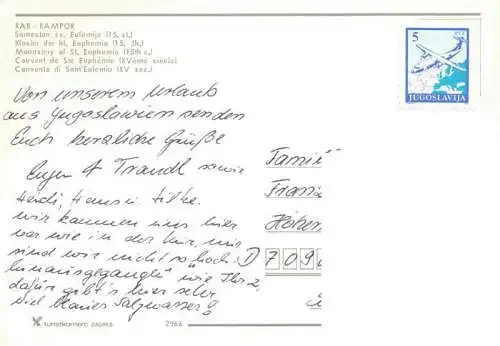 RAB - KAMPOR
Samostan sv. Eufemije (15. st.)
Kloster der hl. Euphemia (15. Jh.)
Monastery of St. Euphemia (15th c.)
Couvent de Ste Euphémie (XVème siècle)
Convento di Sant'Eufemia (XV sec.)
5
JUGOSLAVIJA
Von unserem Urlaub
aus Jugoslawien senden
Euch herzliche Grüße
Eugen + Traudl sowie
Heidi, Hans u. Silke.
Wir kommen uns hier
vor wie in der Kur, nur
sind wir nicht so "hoch
hinausgegangen" wie Ihr 2,
dafür gibt's hier sehr
viel blaues Salzwasser!
Famil
Franz
Höhen
D 709
turistkomerc ZAGREB
2966